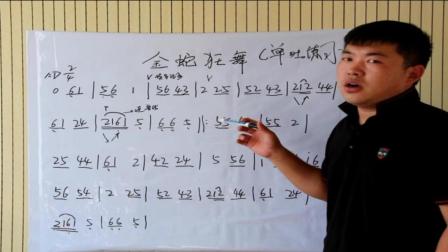 金蛇狂舞（单吐练习
1=D 2/4
0 61 | 56 1 | 56 43 | 2 25 | 52 43 | 212 44 |
61 24 | 2161 5 | 66 5 | 55 2 |
25 44 | 61 2 | 42 24 | 5 56 | 1
56 54 | 2 25 | 52 43 | 212 44 | 61 24 |
2161 5 | 66 5 |